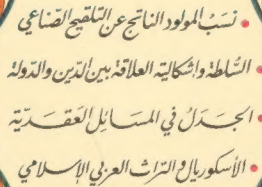 • نسَبُ المولود الناتج عن التلقيح الصّناعي
• السُّلطة واشكاليّة العلاقة بين الدّين والدّولة
• الجَدَلُ في المسَائِل العَقَديّة
• الأسكوريال والتراث العربي الإسلامي